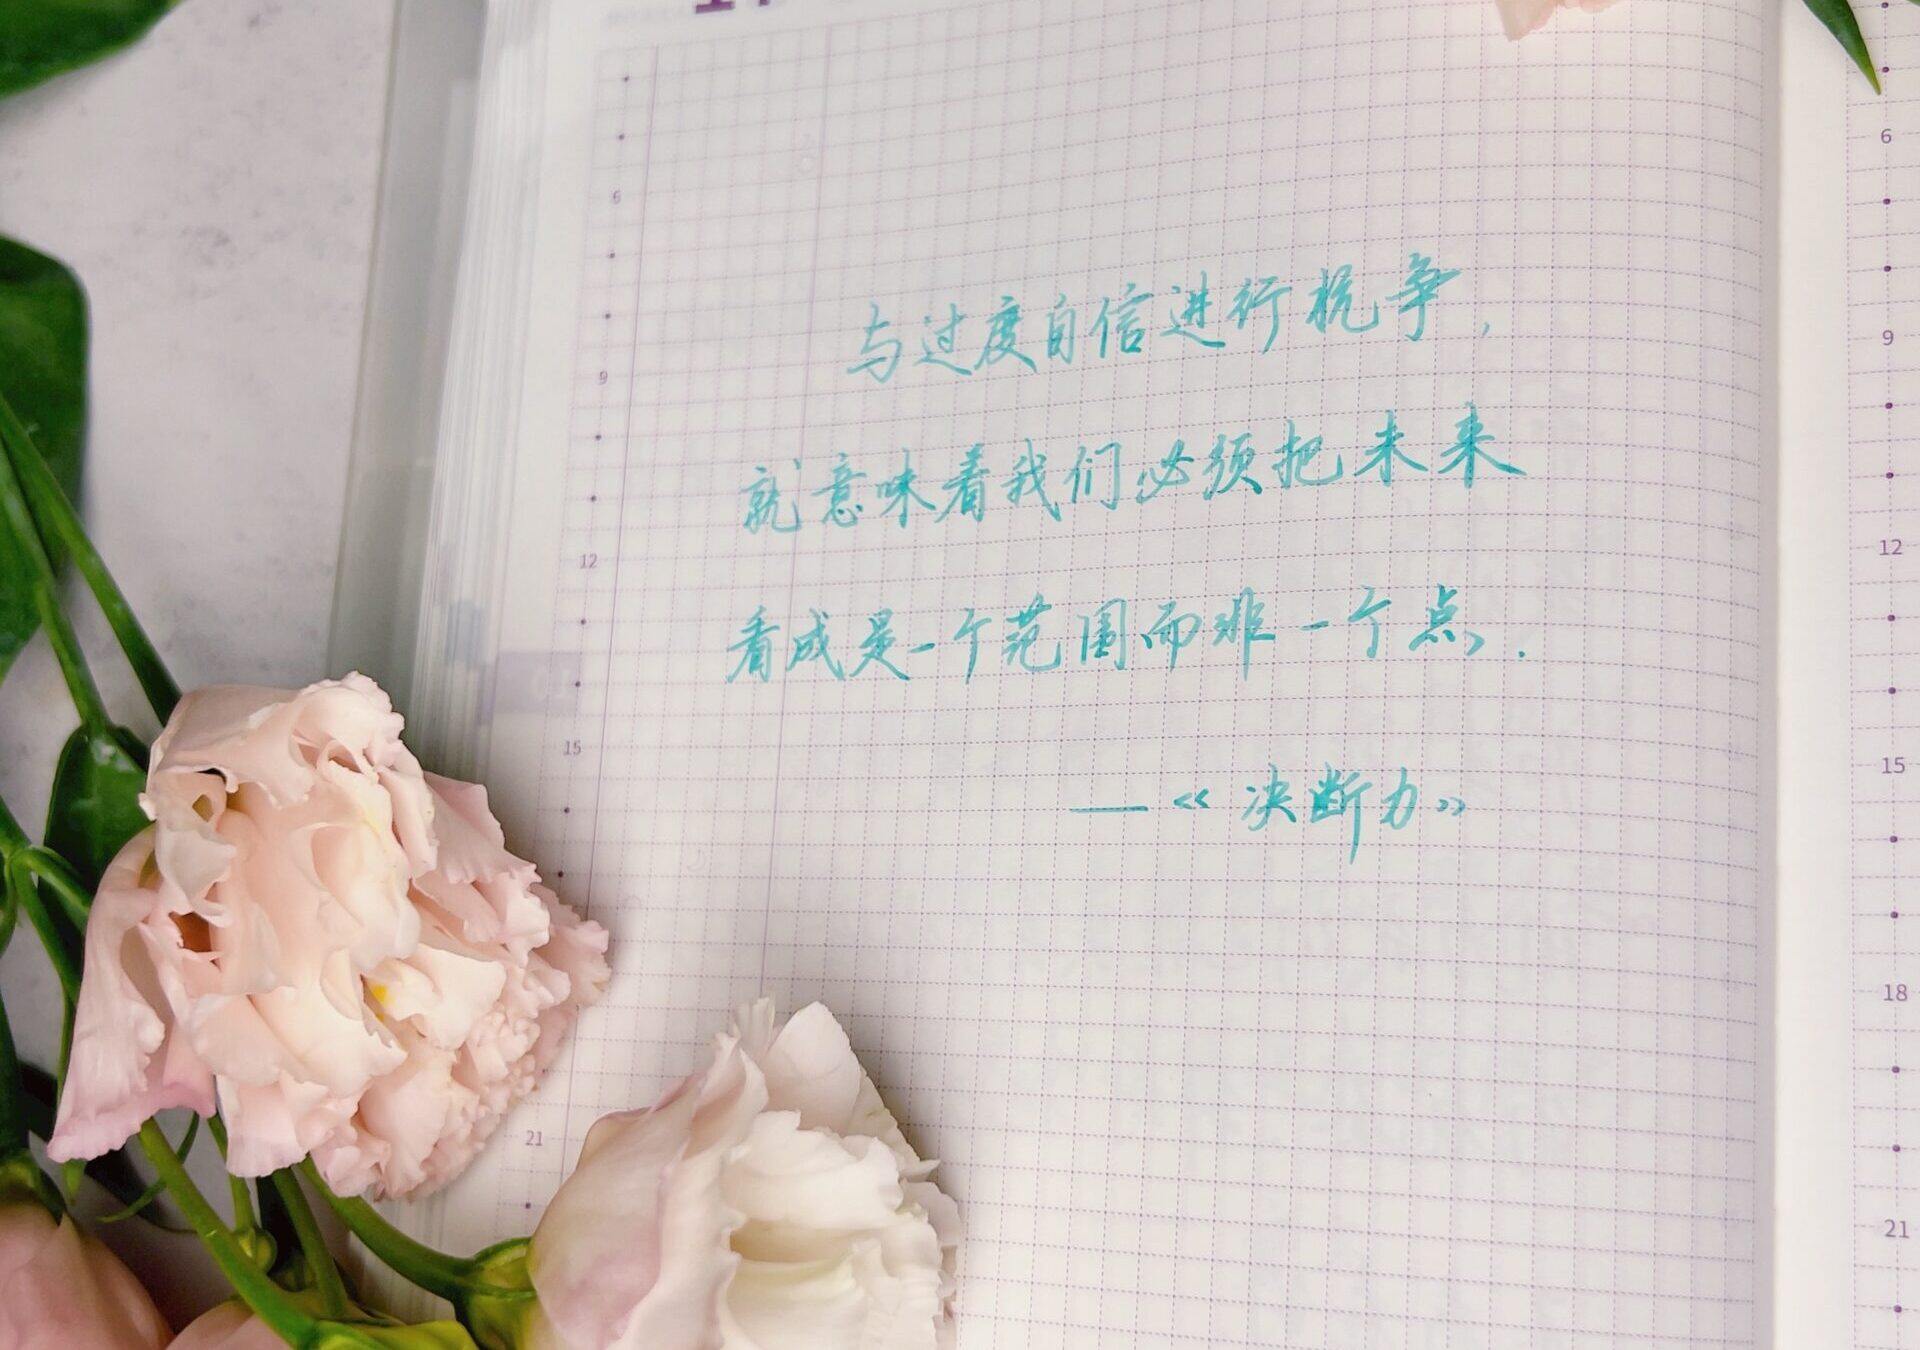 与过度自信进行抗争，
就意味着我们必须把未来
看成是一个范围而非一个点.
—《决断力》
6
9
12
15
21
6
9
12
15
18
21